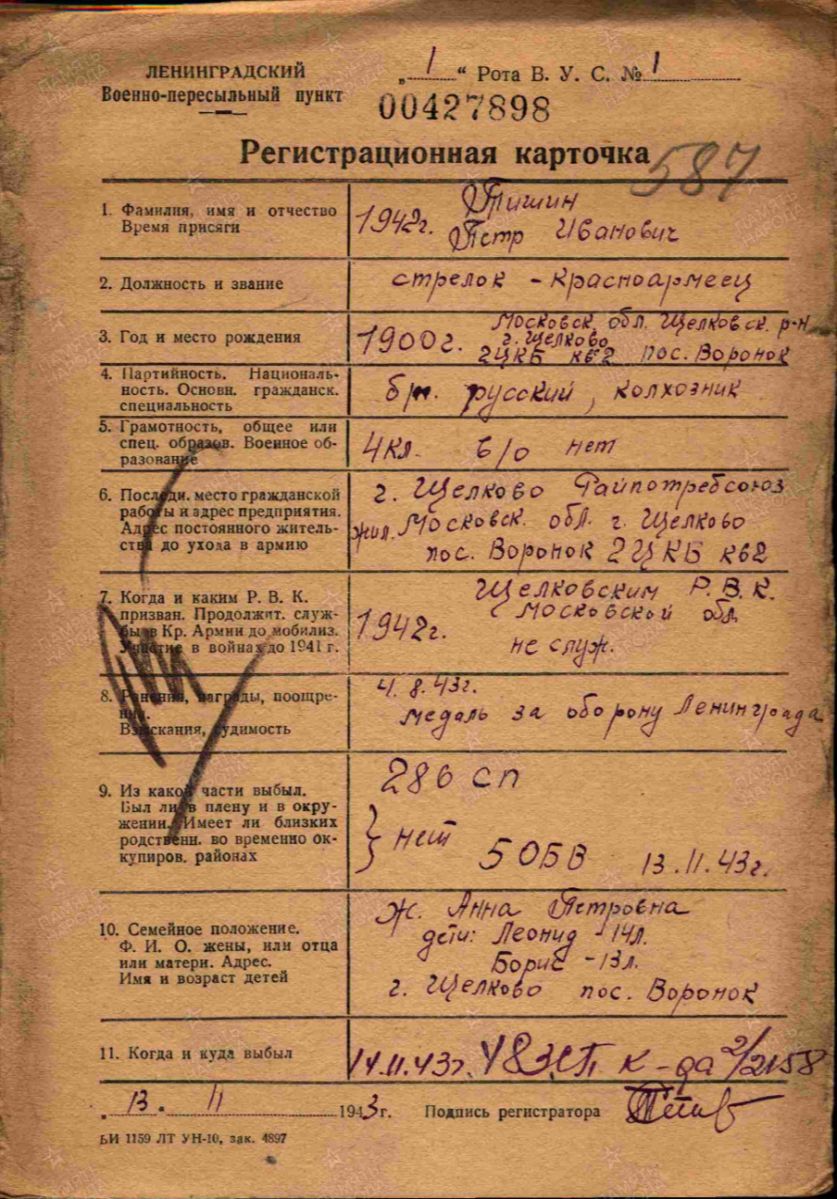 ЛЕНИНГРАДСКИЙ
Военно-пересыльный пункт
„ 1 “ Рота В. У. С. № 1
00427898
Регистрационная карточка
587
1. Фамилия, имя и отчество
Время присяги
1942г. Тишин
Петр Иванович
2. Должность и звание
стрелок - красноармеец
3. Год и место рождения
1900г. Московск. обл. Щелковск. р-н
г. Щелково
2ЦКБ кв2 пос. Воронок
4. Партийность. Националь-
ность. Основн. гражданск.
специальность
б/п. русский, колхозник
5. Грамотность, общее или
спец. образов. Военное об-
разование
4кл. в/о нет
6. Последн. место гражданской
работы и адрес предприятия.
Адрес постоянного житель-
ства до ухода в армию
г. Щелково Райпотребсоюз
жил. Московск. обл. г. Щелково
пос. Воронок 2ЦКБ кв2
7. Когда и каким Р. В. К.
призван. Продолжит. служ-
бы в Кр. Армии до мобилиз.
Участие в войнах до 1941 г.
Щелковским Р.В.К.
1942г. Московской обл.
не служ.
8. Ранения, награды, поощре-
ния.
Взыскания, судимость
4.8.43г.
медаль за оборону Ленинграда
9. Из какой части выбыл.
Был ли в плену и в окру-
жении. Имеет ли близких
родственн. во временно ок-
купиров. районах
286 сп
нет 5 ОБВ 13.11.43г.
10. Семейное положение.
Ф. И. О. жены, или отца
или матери. Адрес.
Имя и возраст детей
ж. Анна Петровна
дети: Леонид - 14л.
Борис - 13л.
г. Щелково пос. Воронок
11. Когда и куда выбыл
14.11.43г. 48 ЗСП к-да 2/2158
„ 13. 11 1943 г. Подпись регистратора
ЬИ 1159 ЛТ УН-10, зак. 4897